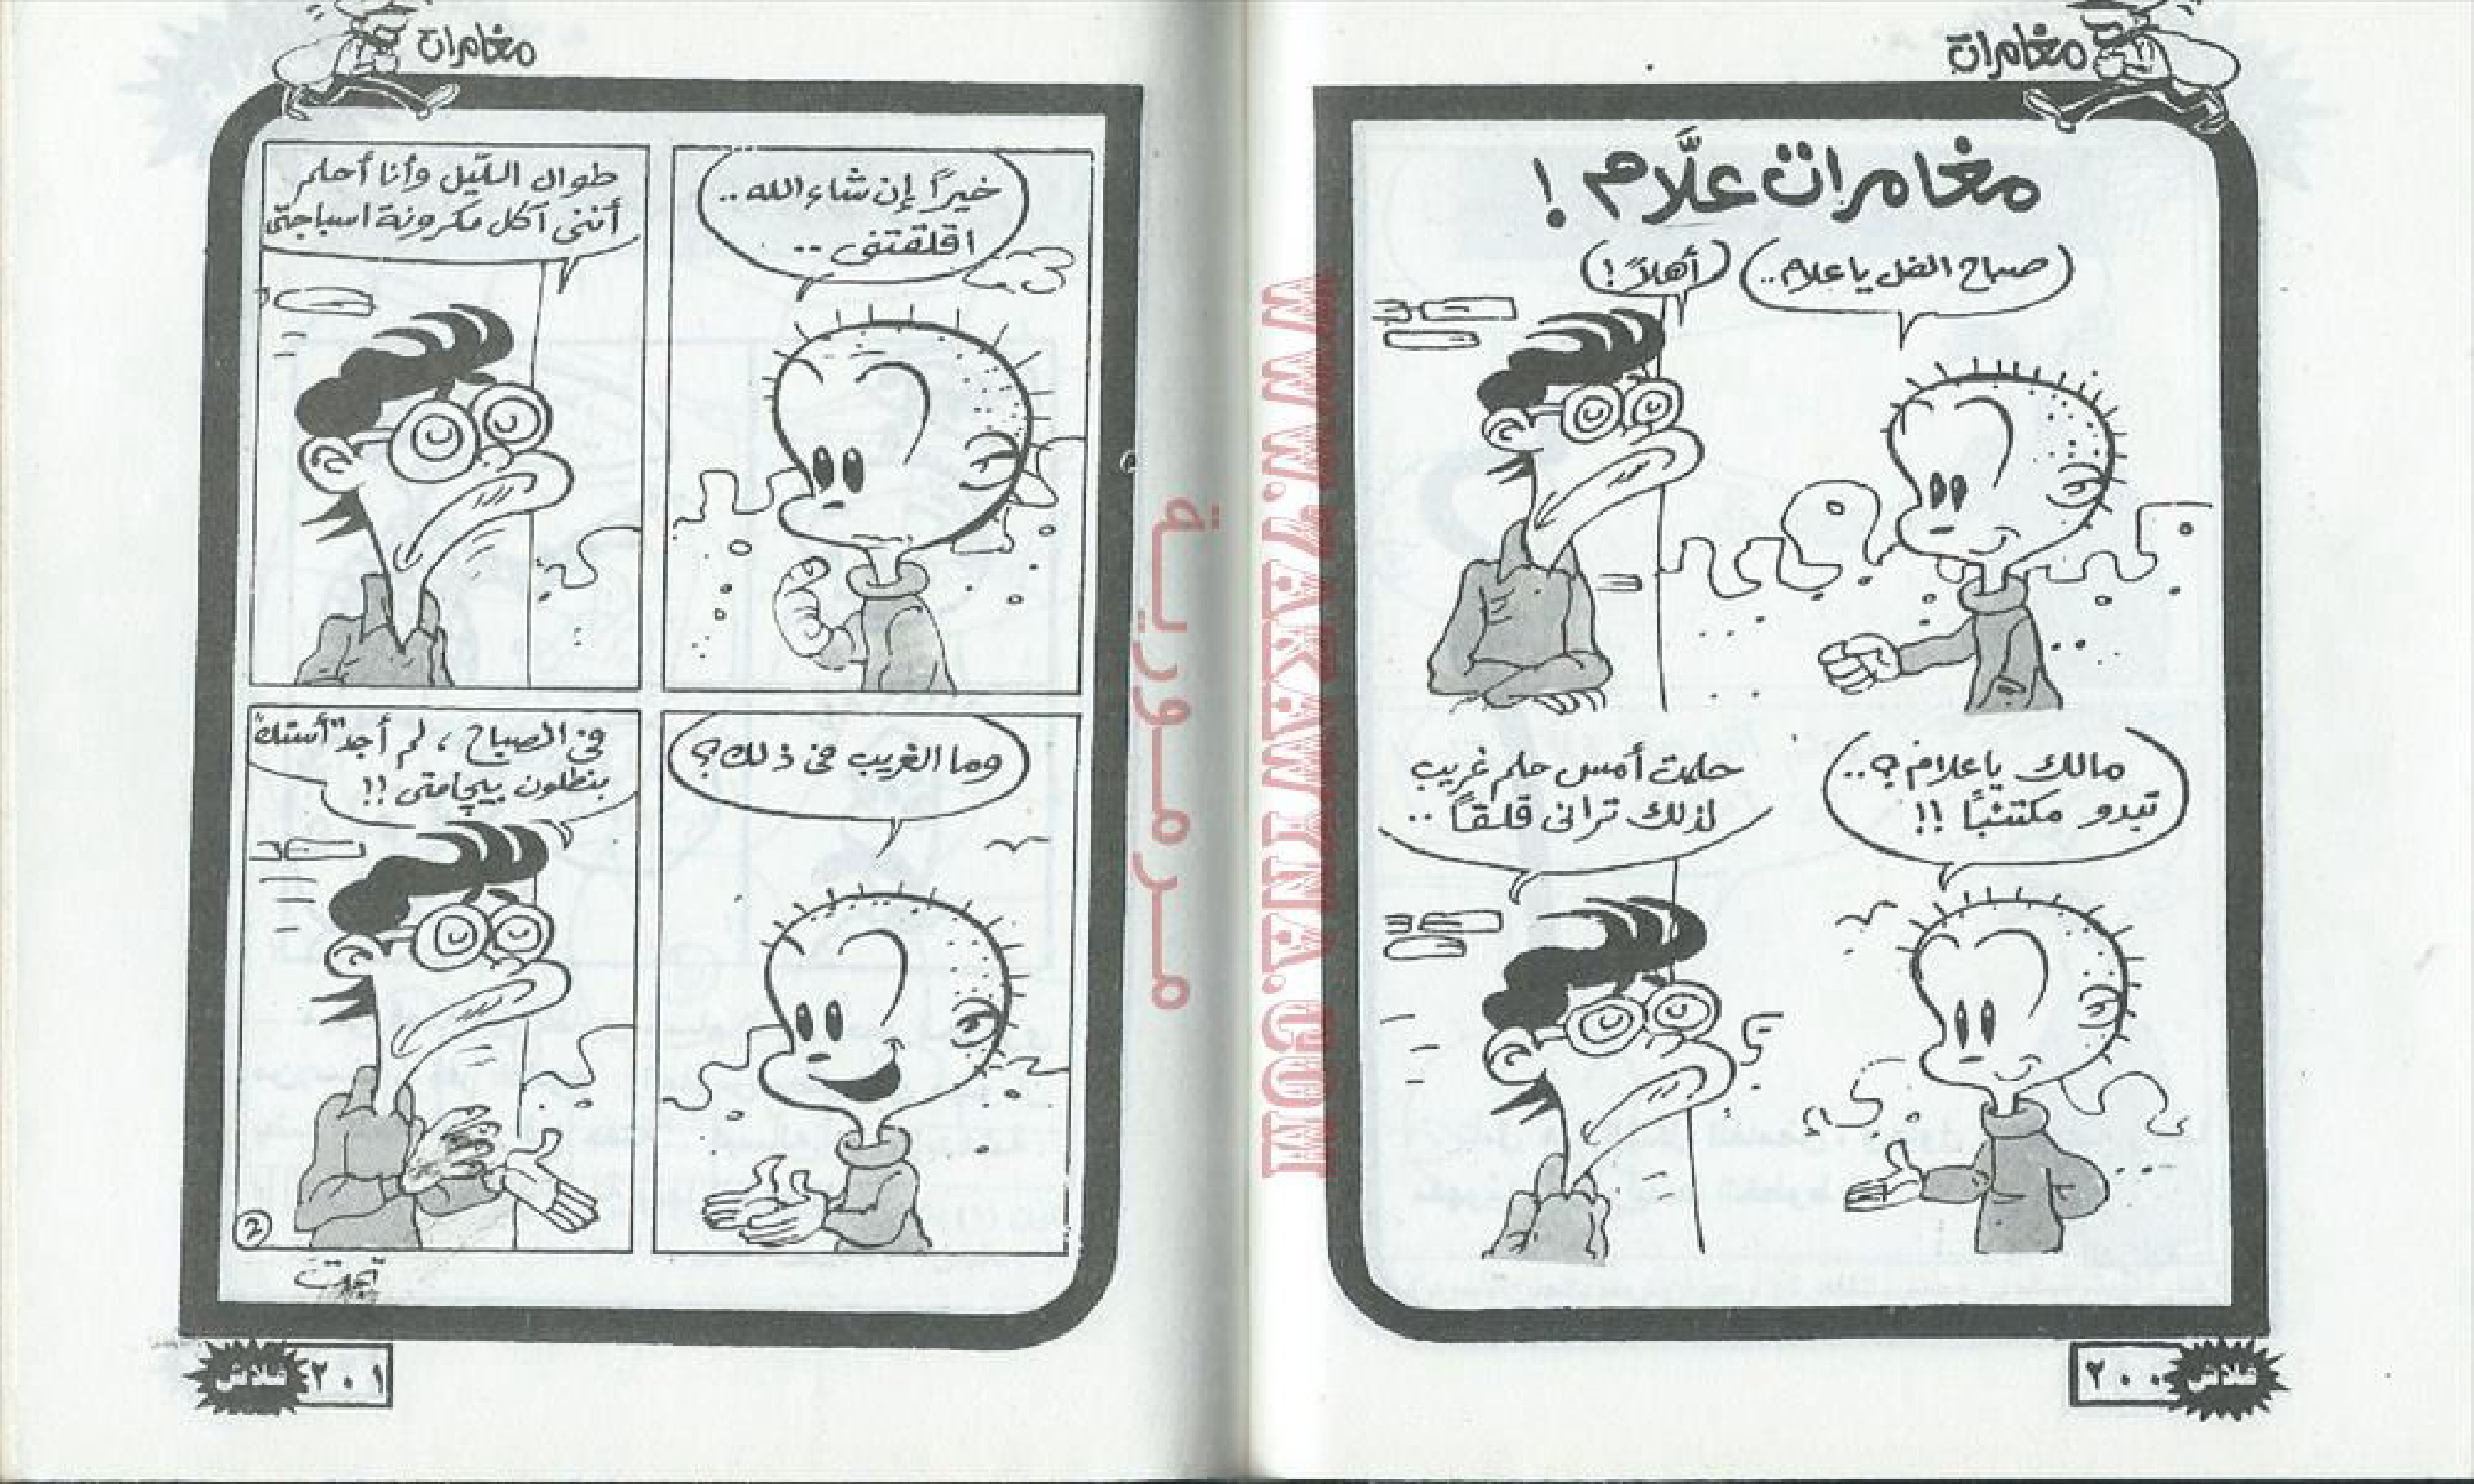 مغامرات
مغامرات علَّام !
صباح الفل يا علام..
أهلاً !
مالك يا علام ؟..
تبدو مكتئباً !!
حلمت أمس حلم غريب
لذلك ترانى قلقاً ..
٢٠٠
فلاش
WWW.7AKAWITNA.COM
مرمورية
مغامرات
خيراً إن شاء الله ..
اقلقتنى ..
طوال الليل وأنا أحلم
أننى آكل مكرونة اسباجتى
وما الغريب فى ذلك ؟
فى الصباح ، لم أجد "أستك"
بنطلون بيچامتى !!
2
٢٠١
فلاش